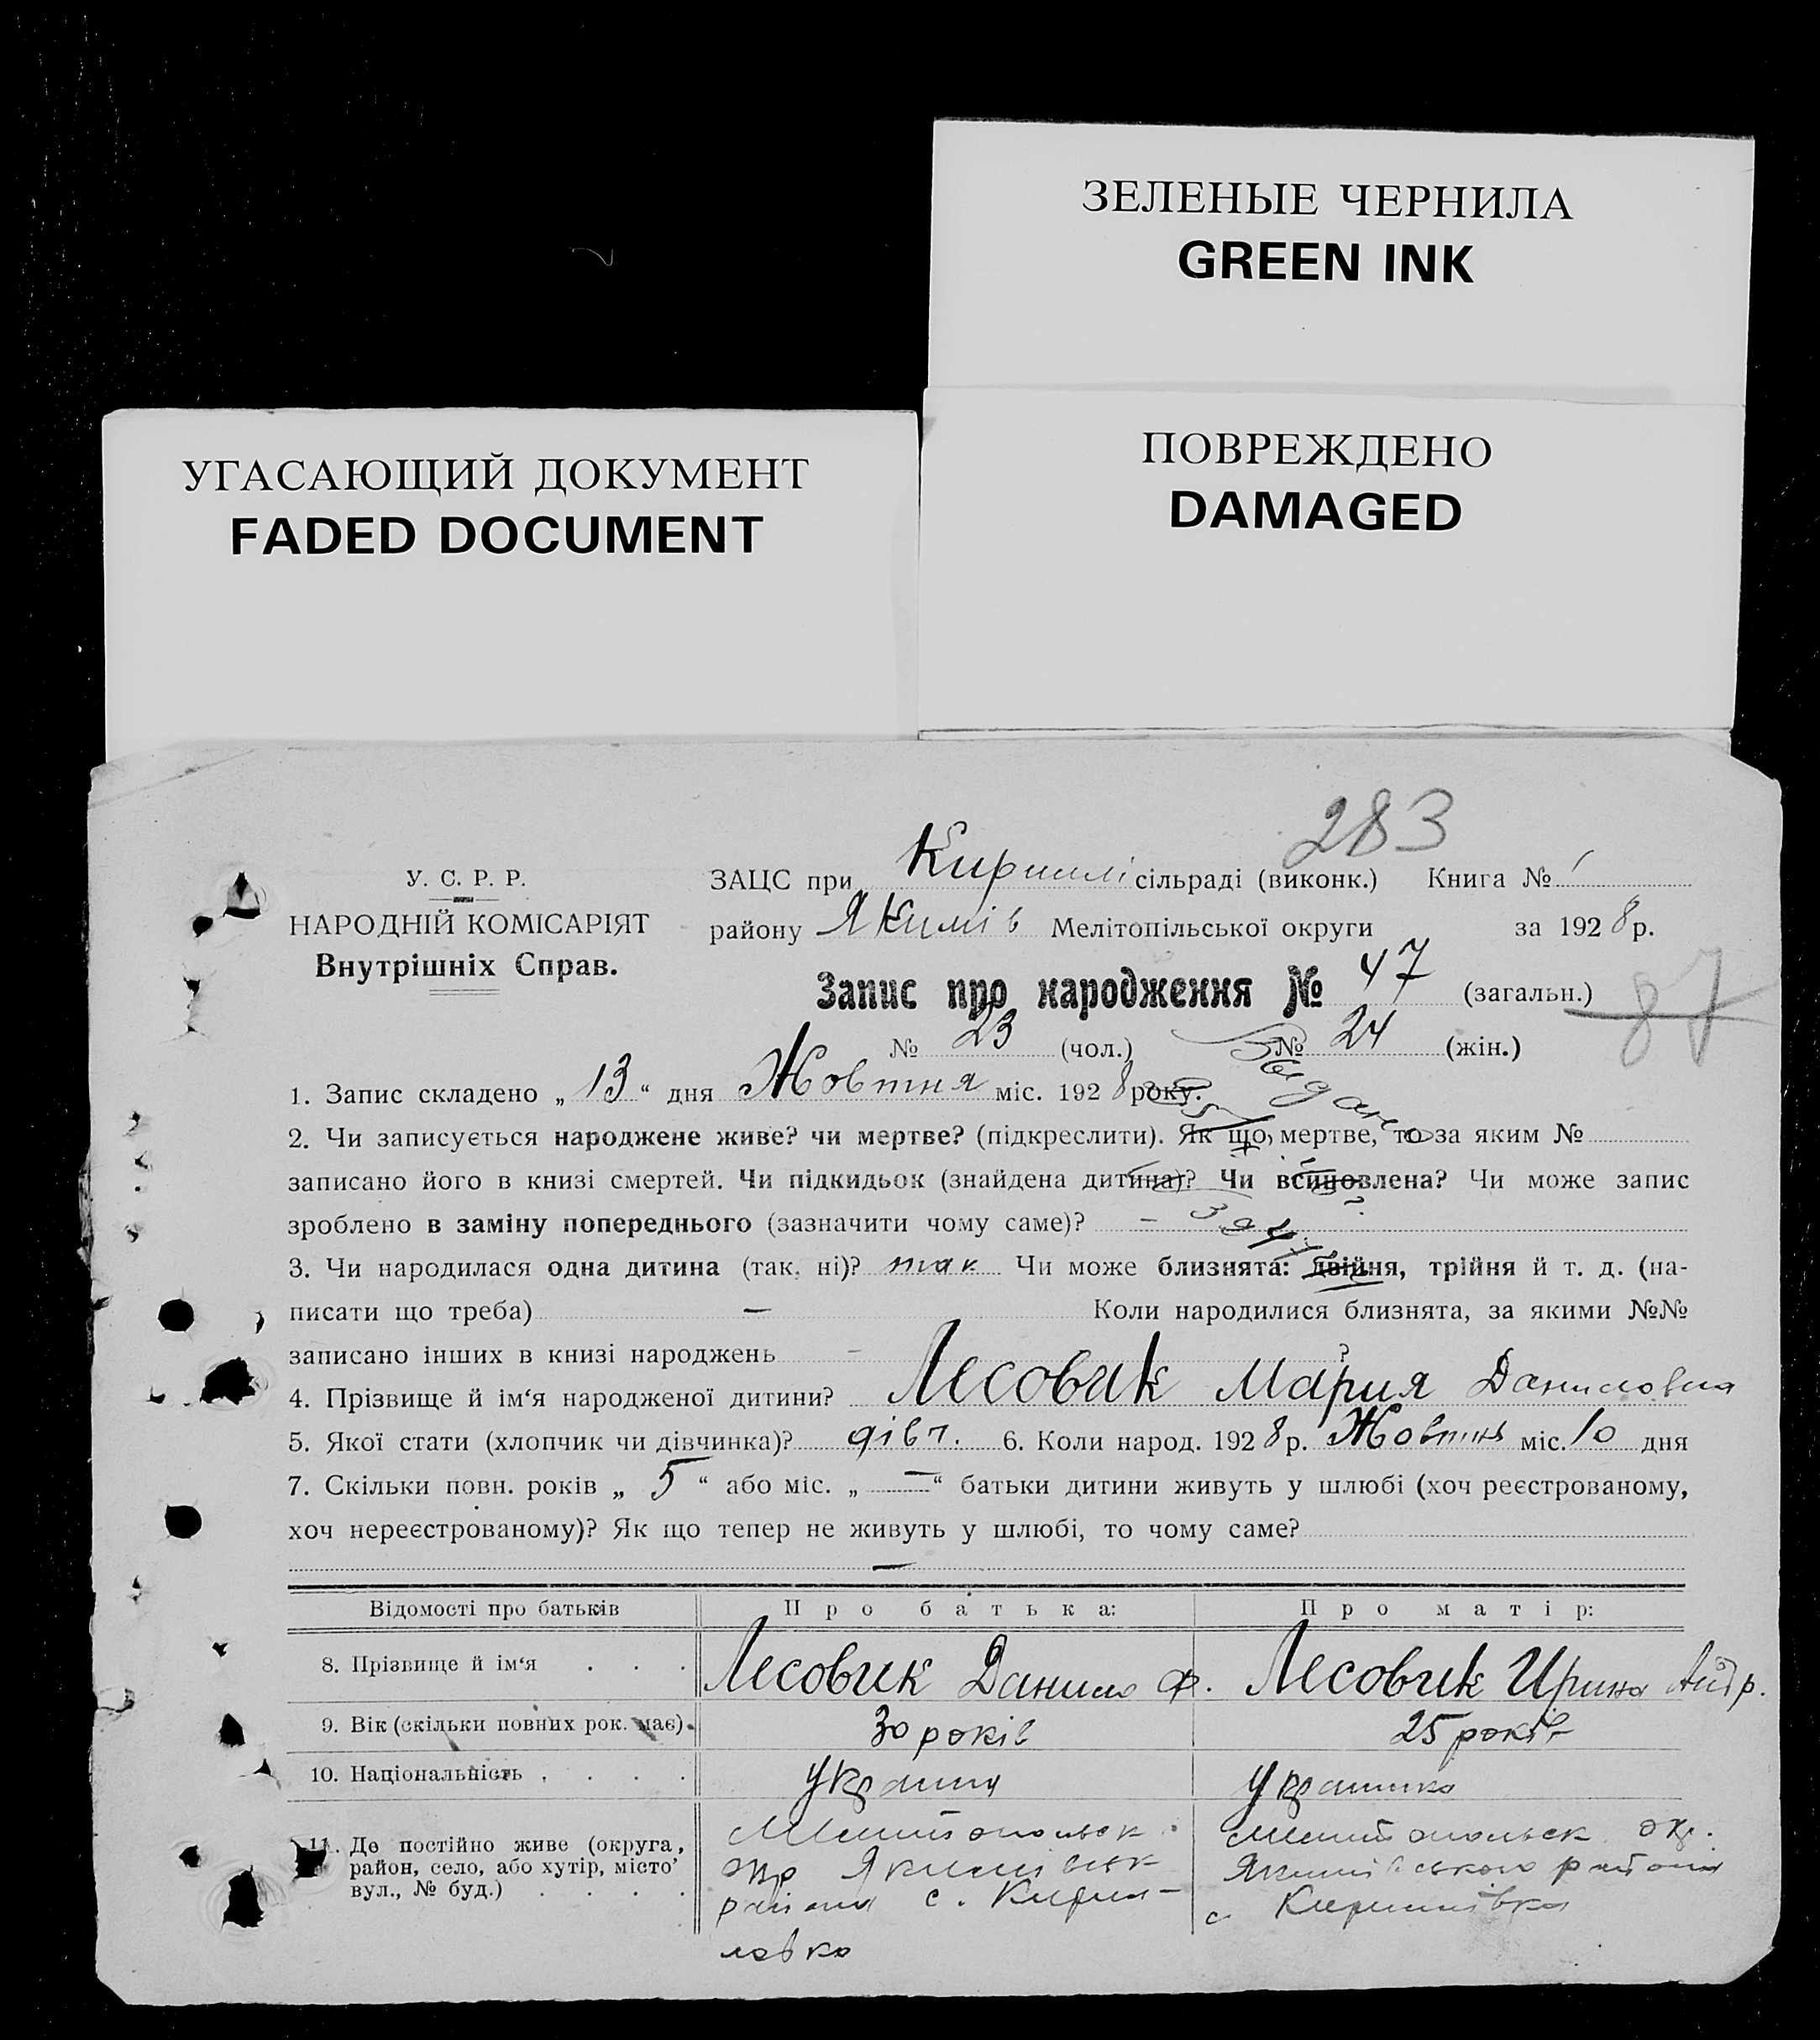 ЗЕЛЕНЫЕ ЧЕРНИЛА
GREEN INK
УГАСАЮЩИЙ ДОКУМЕНТ
FADED DOCUMENT
ПОВРЕЖДЕНО
DAMAGED
283
У. С. Р. Р.
НАРОДНІЙ КОМІСАРІЯТ
Внутрішніх Справ.
ЗАЦС при сільраді (виконк.) Книга №
району Якимів Мелітопільської округи за 1928 р.
Запис про народження № 47 (загальн.)
87
№ 23 (чол.) № 24 (жін.)
1. Запис складено „ 13 “ дня Жовтня міс. 1928 року.
2. Чи записується народжене живе? чи мертве? (підкреслити). Як що, мертве, то за яким №
записано його в книзі смертей. Чи підкидьок (знайдена дитина)? Чи всиновлена? Чи може запис
зроблено в заміну попереднього (зазначити чому саме)? —
3. Чи народилася одна дитина (так, ні)? так Чи може близнята: двійня, трійня й т. д. (на-
писати що треба) — Коли народилися близнята, за якими №№
записано інших в книзі народжень — ?
4. Прізвище й ім‘я народженої дитини? Лесовик Мария Даниловна
5. Якої стати (хлопчик чи дівчинка)? дівч. 6. Коли народ. 1928 р. Жовтня міс. 10 дня
7. Скільки повн. років „ 5 “ або міс. „ — “ батьки дитини живуть у шлюбі (хоч реєстрованому,
хоч нереєстрованому)? Як що тепер не живуть у шлюбі, то чому саме?
—
Відомості про батьків Про батька: Про матір:
8. Прізвище й ім‘я . . . Лесовик Данило Ф. Лесовик Ирина Андр.
9. Вік (скільки повних рок. має). 30 років 25 років
10. Національність . . . . Українка
11. Де постійно живе (округа,
район, село, або хутір, місто’
вул., № буд.) . . . .
Мелитопольск
окр Якимівськ
района с. Кирил-
ловка
Мелитопольск окр.
Якимівського района
с Кирилівка